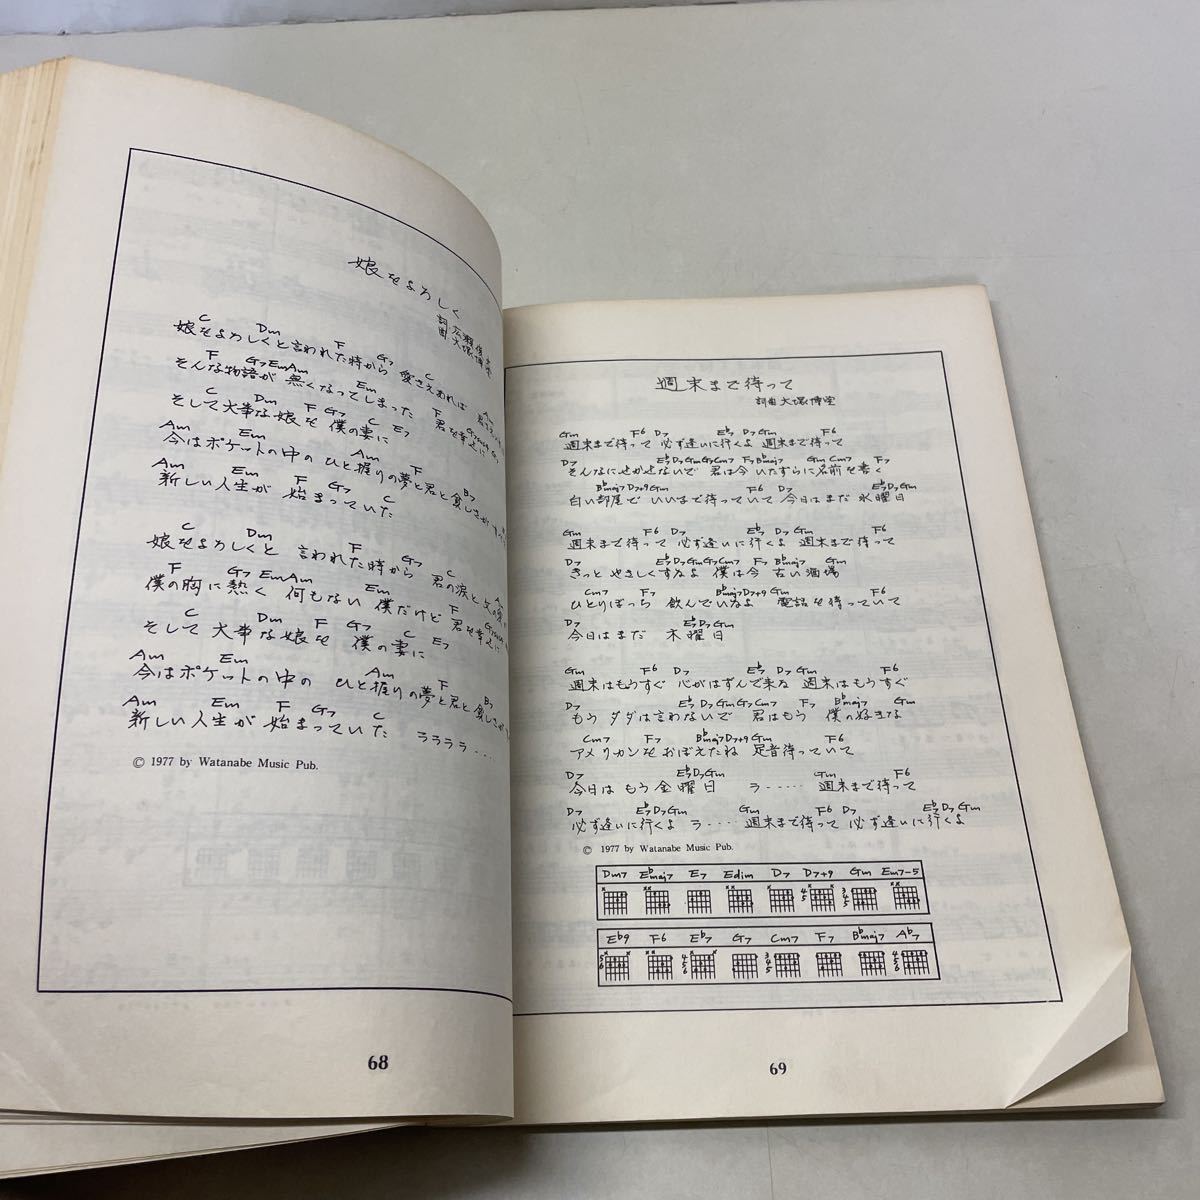 娘をよろしく
詞 広瀬
曲 大塚博堂
C Dm F G7 C
娘をよろしくと言われた時から 愛さえあれば
F G7 Em Am Em F G7sus4 G7
そんな物語が 無くなってしまった 君を幸せに
C Dm F G7 C E7
そして大事な娘を 僕の妻に
Am Em Am F B7
今はポケットの中の ひと握りの夢と君と貧しさが
Am Em F G7 C
新しい人生が 始まっていた
C Dm F G7 C
娘をよろしくと 言われた時から 君の涙と父の
F G7 Em Am Em F G7sus4
僕の胸に熱く 何もない 僕だけど 君を幸せに
C Dm F G7 C E7
そして 大事な娘を 僕の妻に
Am Em Am F B7
今はポケットの中の ひと握りの夢と君と 貧しさが
Am Em F G7 C
新しい人生が 始まっていた ラララララ‥‥
© 1977 by Watanabe Music Pub.
68
週末まで待って
詞曲 大塚博堂
Gm F6 D7 E♭7 D7 Gm F6
週末まで待って 必ず逢いに行くよ 週末まで待って
D7 E♭7 D7 Gm G7 Cm7 F7 B♭maj7 Gm Cm7 F7
そんなにせかせないで 君は今 いたずらに名前を書く
B♭maj7 D7+9 Gm F6 D7 E♭7 D7 Gm
白い部屋で いいまで待っていて 今日はまだ 水曜日
Gm F6 D7 E♭7 D7 Gm F6
週末まで待って 必ず逢いに行くよ 週末まで待って
D7 E♭7 D7 Gm G7 Cm7 F7 B♭maj7 Gm
きっと やさしくするよ 僕は今 古い酒場
Cm7 F7 B♭maj7 D7+9 Gm F6
ひとりぼっち 飲んでいるよ 電話を待っていて
D7 E♭7 D7 Gm
今日はまだ 木曜日
Gm F6 D7 E♭7 D7 Gm F6
週末はもうすぐ 心がはずんで来る 週末はもうすぐ
D7 E♭7 D7 Gm G7 Cm7 F7 B♭maj7 Gm
もう ダダは言わないで 君はもう 僕の好きな
Cm7 F7 B♭maj7 D7+9 Gm F6
アメリカンをおぼえたね 足音待っていて
D7 E♭7 D7 Gm Gm F6
今日は もう 金曜日 ラ‥‥‥ 週末まで待って
D7 E♭7 D7 Gm Gm F6 D7 E♭7 D7 Gm
必ず逢いに行くよ ラ‥‥ 週末まで待って 必ず逢いに行くよ
© 1977 by Watanabe Music Pub.
Dm7 E♭maj7 E7 Edim D7 D7+9 Gm Em7-5
E♭9 F6 E♭7 G7 Cm7 F7 B♭maj7 A♭7
69